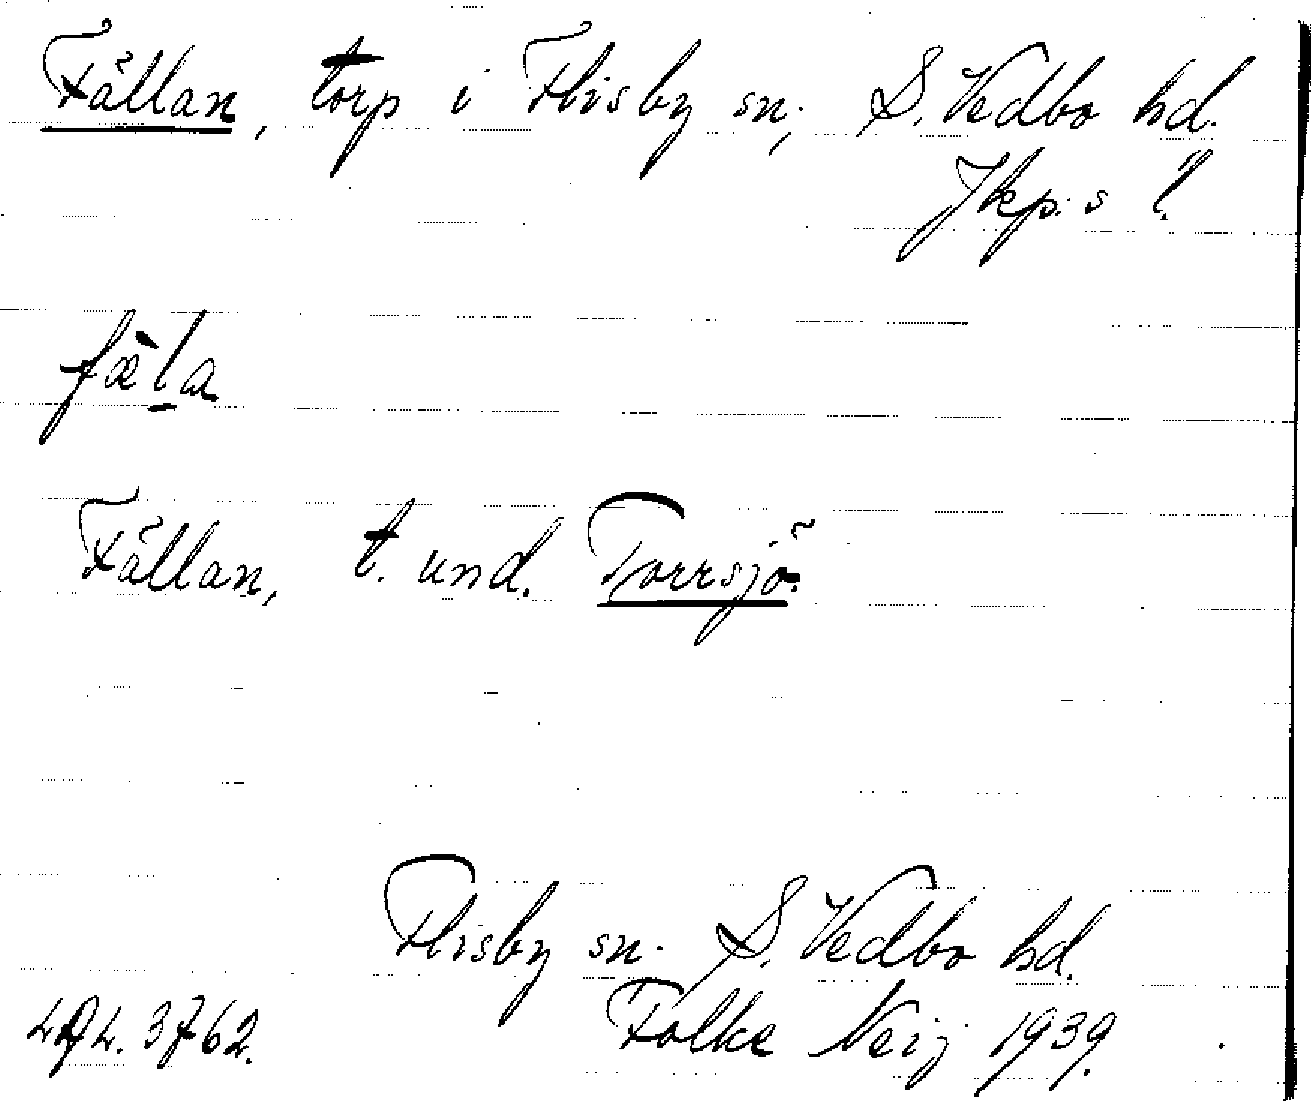 Fällan, torp i Flisby sn; S. Vedbo hd.
Jkp:s l.
fæ̀la
Fällan, t. und. Torrsjö.
Flisby sn. S. Vedbo hd.
3762. Folke Neij 1939.